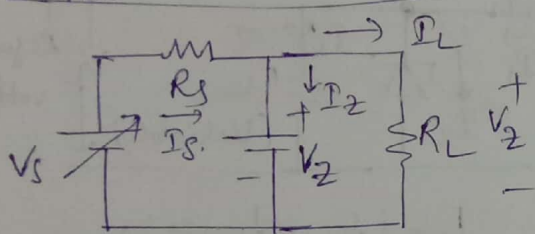 → I_L
R_S
→
I_S.
↓ I_Z
+
V_Z
-
V_S
R_L
+
V_Z
-